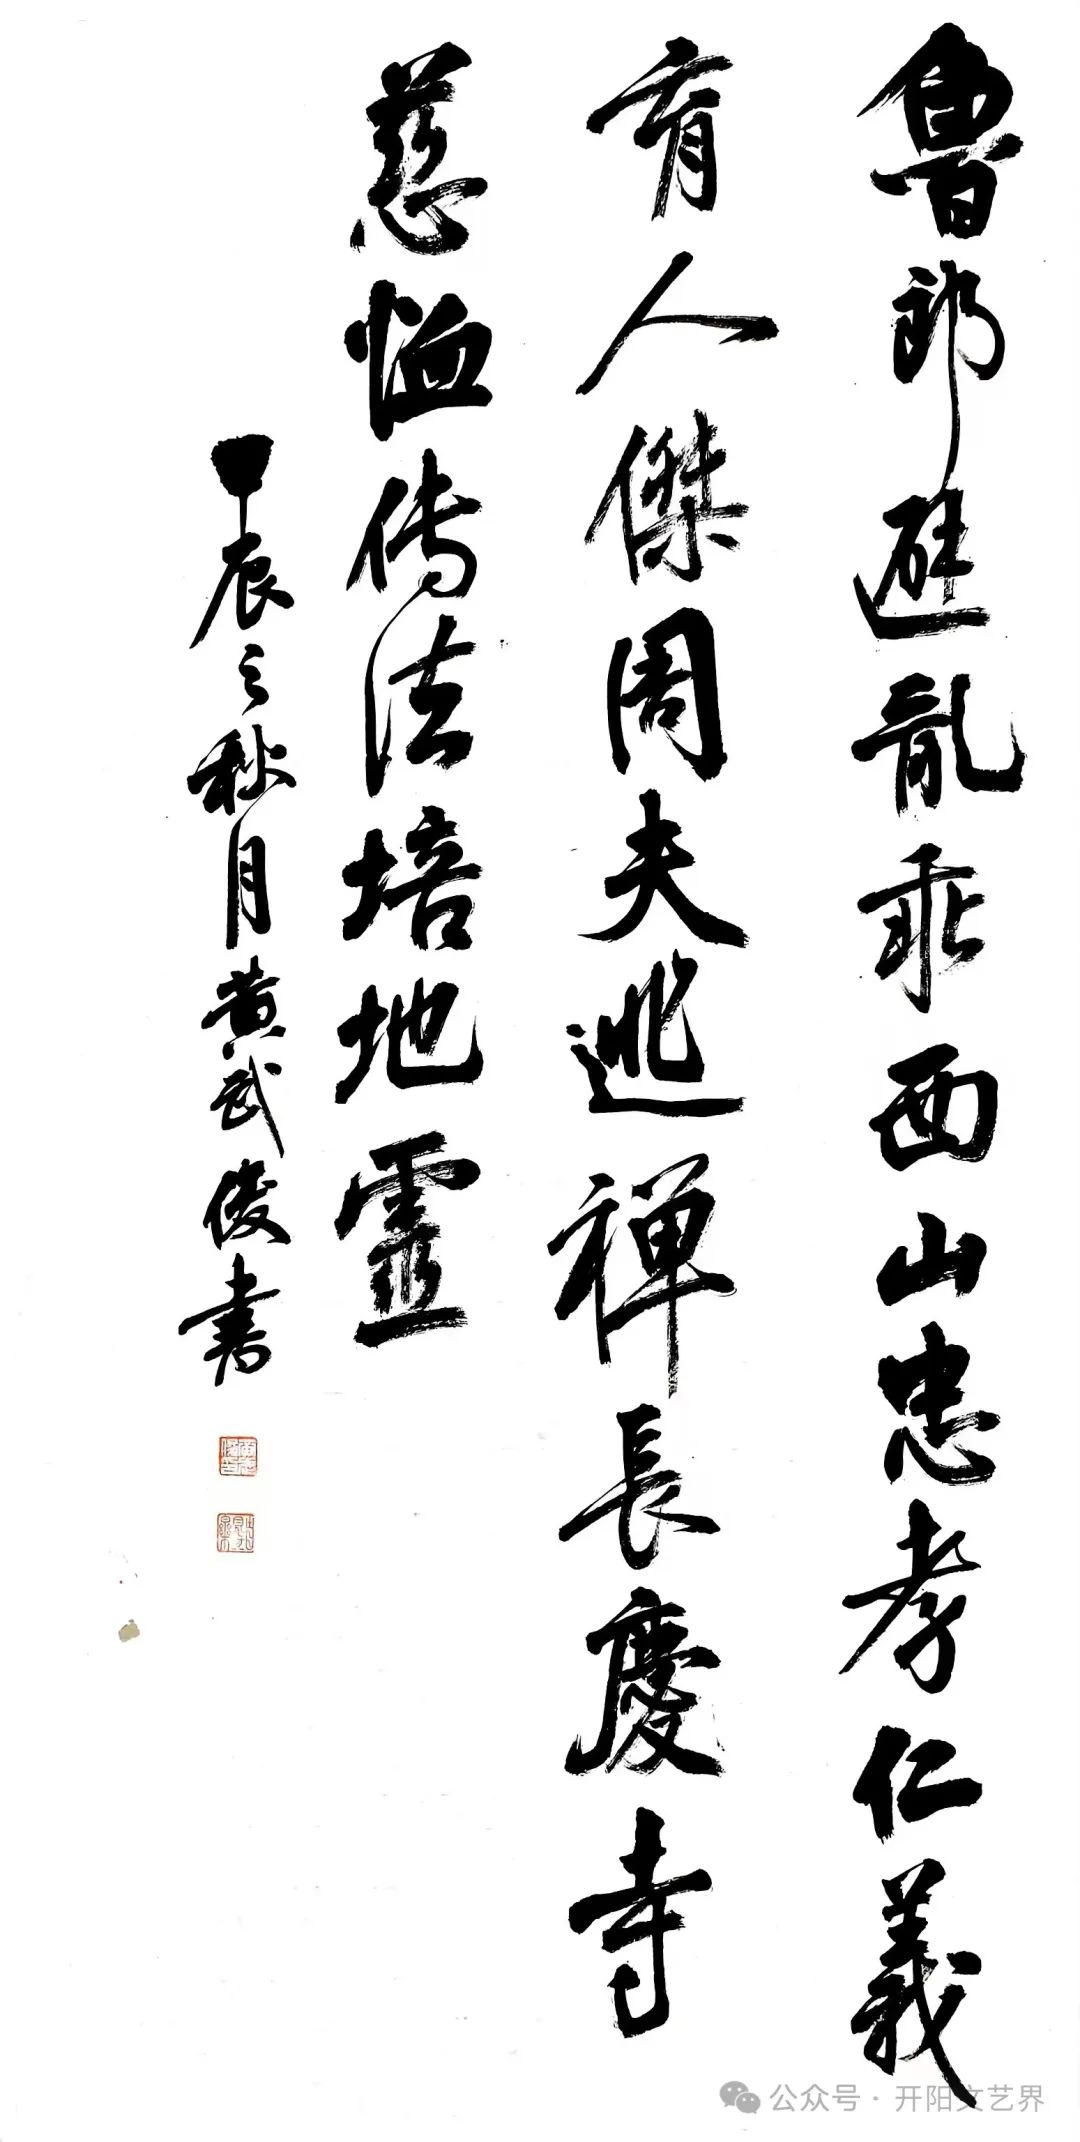 魯郎避亂乖西山忠孝仁義
育人傑周夫逃禅長慶寺
慈恤傳法培地靈
甲辰之秋月黄武俊書
公众号·开阳文艺界